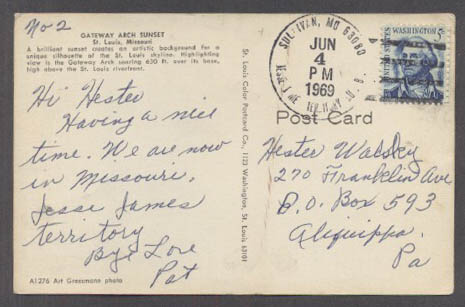 No 2
GATEWAY ARCH SUNSET
St. Louis, Missouri
A brilliant sunset creates an artistic background for a
unique silhouette of the St. Louis skyline. Highlighting
view is the Gateway Arch soaring 630 ft. over its base,
high above the St. Louis riverfront.
Hi Hester
Having a nice
time. We are now
in Missouri,
Jesse James
territory
Bye Love
Pat
A1276 Art Grossmann photo
St. Louis Color Postcard Co., 1123 Washington, St. Louis 63101
SULLIVAN, MO 63080
JUN
4
PM
1969
UNITED STATES
WASHINGTON
5c
Post Card
Hester Walsky
270 Franklin Ave
P.O. Box 593
Aliquippa,
Pa